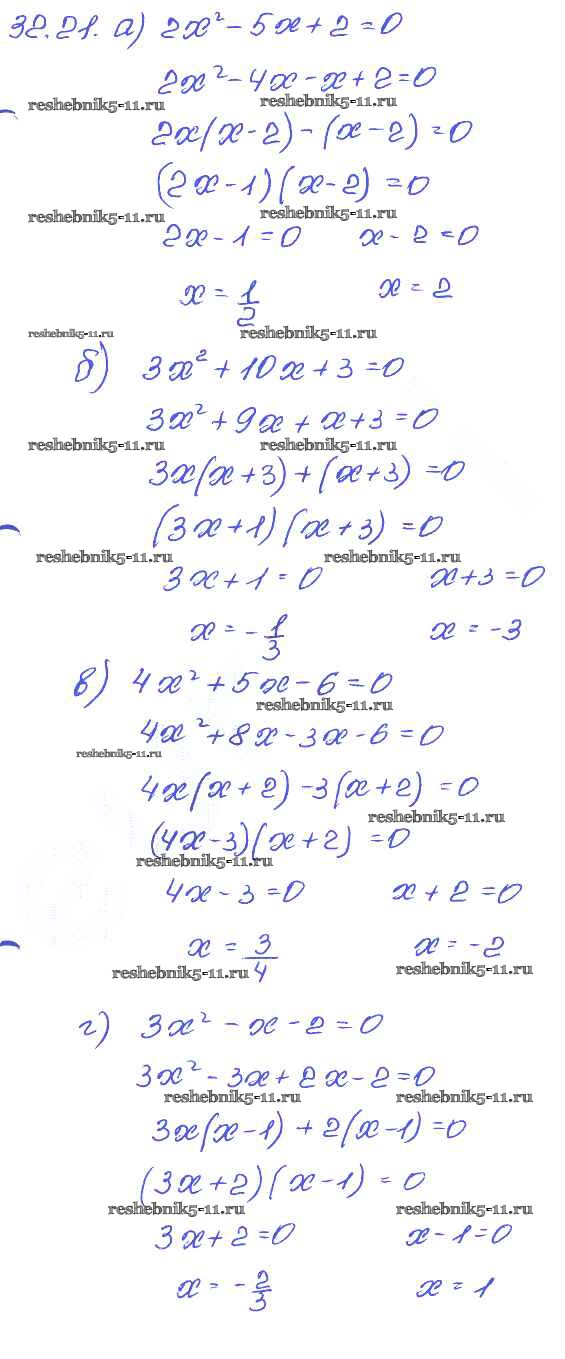 32.21. а) 2x² - 5x + 2 = 0
2x² - 4x - x + 2 = 0
reshebnik5-11.ru reshebnik5-11.ru
2x(x - 2) - (x - 2) = 0
(2x - 1)(x - 2) = 0
reshebnik5-11.ru reshebnik5-11.ru
2x - 1 = 0 x - 2 = 0
x = 1/2 x = 2
reshebnik5-11.ru reshebnik5-11.ru
б) 3x² + 10x + 3 = 0
3x² + 9x + x + 3 = 0
reshebnik5-11.ru reshebnik5-11.ru
3x(x + 3) + (x + 3) = 0
(3x + 1)(x + 3) = 0
reshebnik5-11.ru reshebnik5-11.ru
3x + 1 = 0 x + 3 = 0
x = - 1/3 x = -3
в) 4x² + 5x - 6 = 0
reshebnik5-11.ru
4x² + 8x - 3x - 6 = 0
reshebnik5-11.ru
4x(x + 2) - 3(x + 2) = 0
reshebnik5-11.ru
(4x - 3)(x + 2) = 0
reshebnik5-11.ru
4x - 3 = 0 x + 2 = 0
x = 3/4 x = -2
reshebnik5-11.ru reshebnik5-11.ru
г) 3x² - x - 2 = 0
3x² - 3x + 2x - 2 = 0
reshebnik5-11.ru reshebnik5-11.ru
3x(x - 1) + 2(x - 1) = 0
(3x + 2)(x - 1) = 0
reshebnik5-11.ru reshebnik5-11.ru
3x + 2 = 0 x - 1 = 0
x = - 2/3 x = 1